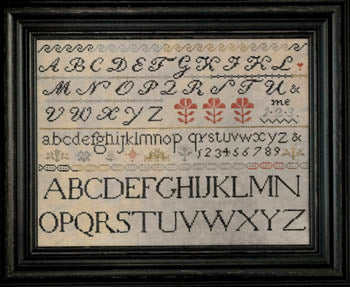 ABCDEFGHIJKL
MNOPQRSTU&
VWXYZ me
abcdefghijklmnop qrstuvwxyz &
123456789
ABCDEFGHIJKLMN
OPQRSTUVWXYZ